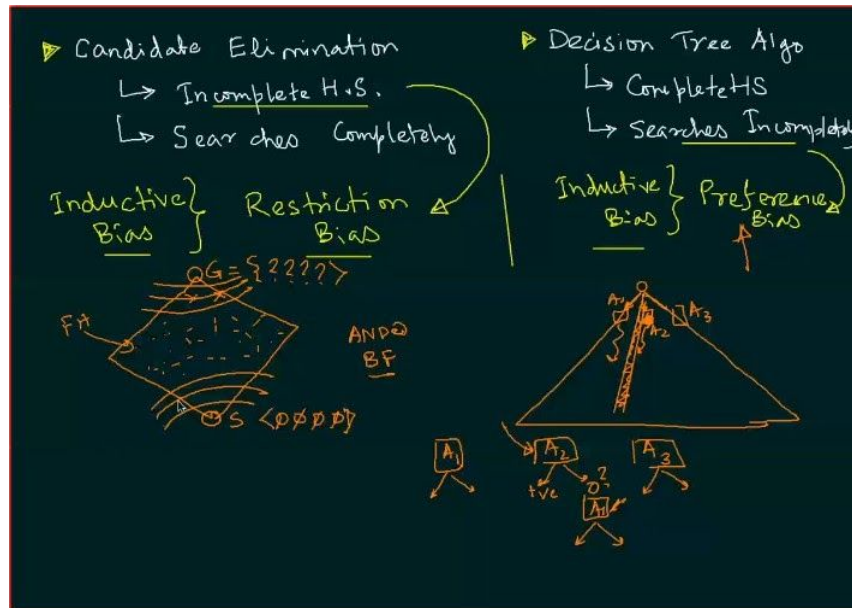 Candidate Elimination
↳ Incomplete H.S.
↳ Searches Completely
Inductive Bias } Restriction Bias
G = {?????>
FA
S <ØØØØ}
AND
BF
Decision Tree Algo
↳ Complete HS
↳ Searches Incompletely
Inductive Bias } Preference Bias
A1
A2
A3
A1
A2
A3
+ve
?
A1